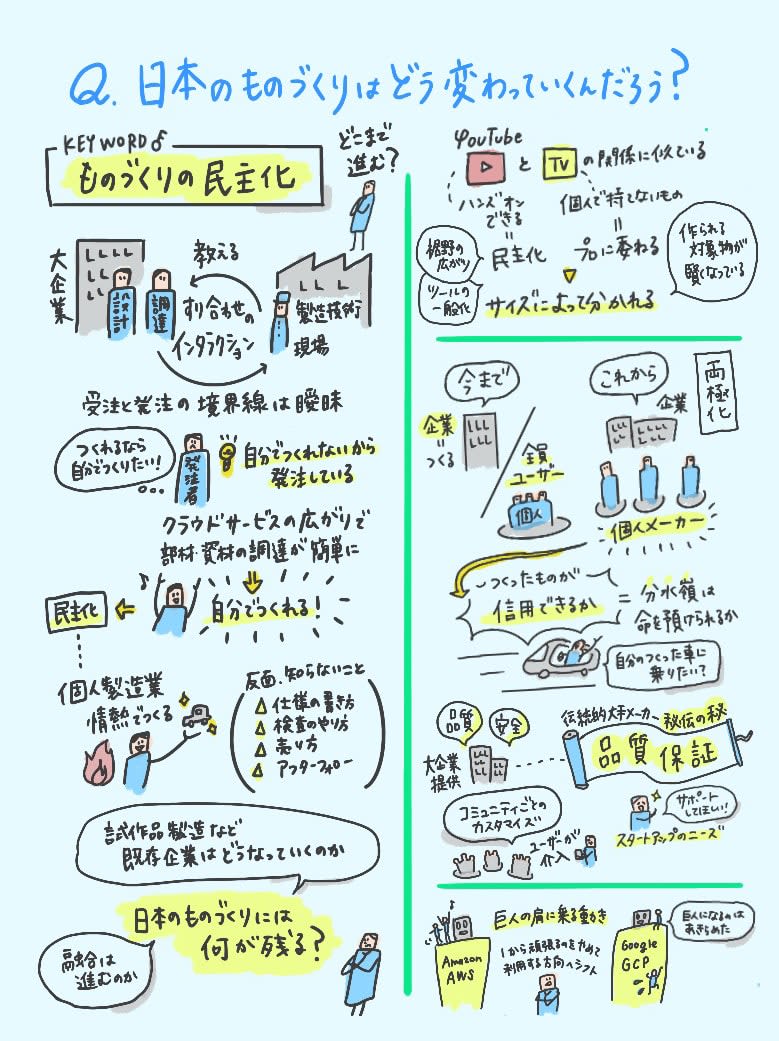 Q. 日本のものづくりはどう変わっていくんだろう?
KEYWORD
ものづくりの民主化
どこまで
進む?
大企業
設計
調達
教える
すり合わせの
インタラクション
製造技術
現場
受注と発注の境界線は曖昧
つくれるなら
自分でつくりたい!
発注者
自分でつくれないから
発注している
クラウドサービスの広がりで
部材・資材の調達が簡単に
自分でつくれる!
民主化
個人製造業
情熱でつくる
反面、知らないこと
仕様の書き方
検査のやり方
売り方
アフターフォロー
試作品製造など
既存企業はどうなっていくのか
日本のものづくりには
何が残る?
融合は
進むのか
YouTube
と TV の関係に似ている
ハンズオン
できる
=
民主化
個人で持てないもの
=
プロに委ねる
裾野の
広がり
ツールの
一般化
作られる
対象物が
賢くなっている
サイズによって分かれる
両極化
今まで
企業
=
つくる
全員
ユーザー
個人
これから
企業
個人メーカー
つくったものが
信用できるか
= 分水嶺は
命を預けられるか
自分のつくった車に
乗りたい?
品質
安全
大企業
提供
伝統的大手メーカー秘伝の秘
品質保証
コミュニティごとの
カスタマイズ
ユーザーが
介入
サポート
してほしい!
スタートアップのニーズ
巨人の肩に乗る動き
Amazon
AWS
1から頑張るのをやめて
利用する方向へシフト
Google
GCP
巨人になるのは
あきらめた